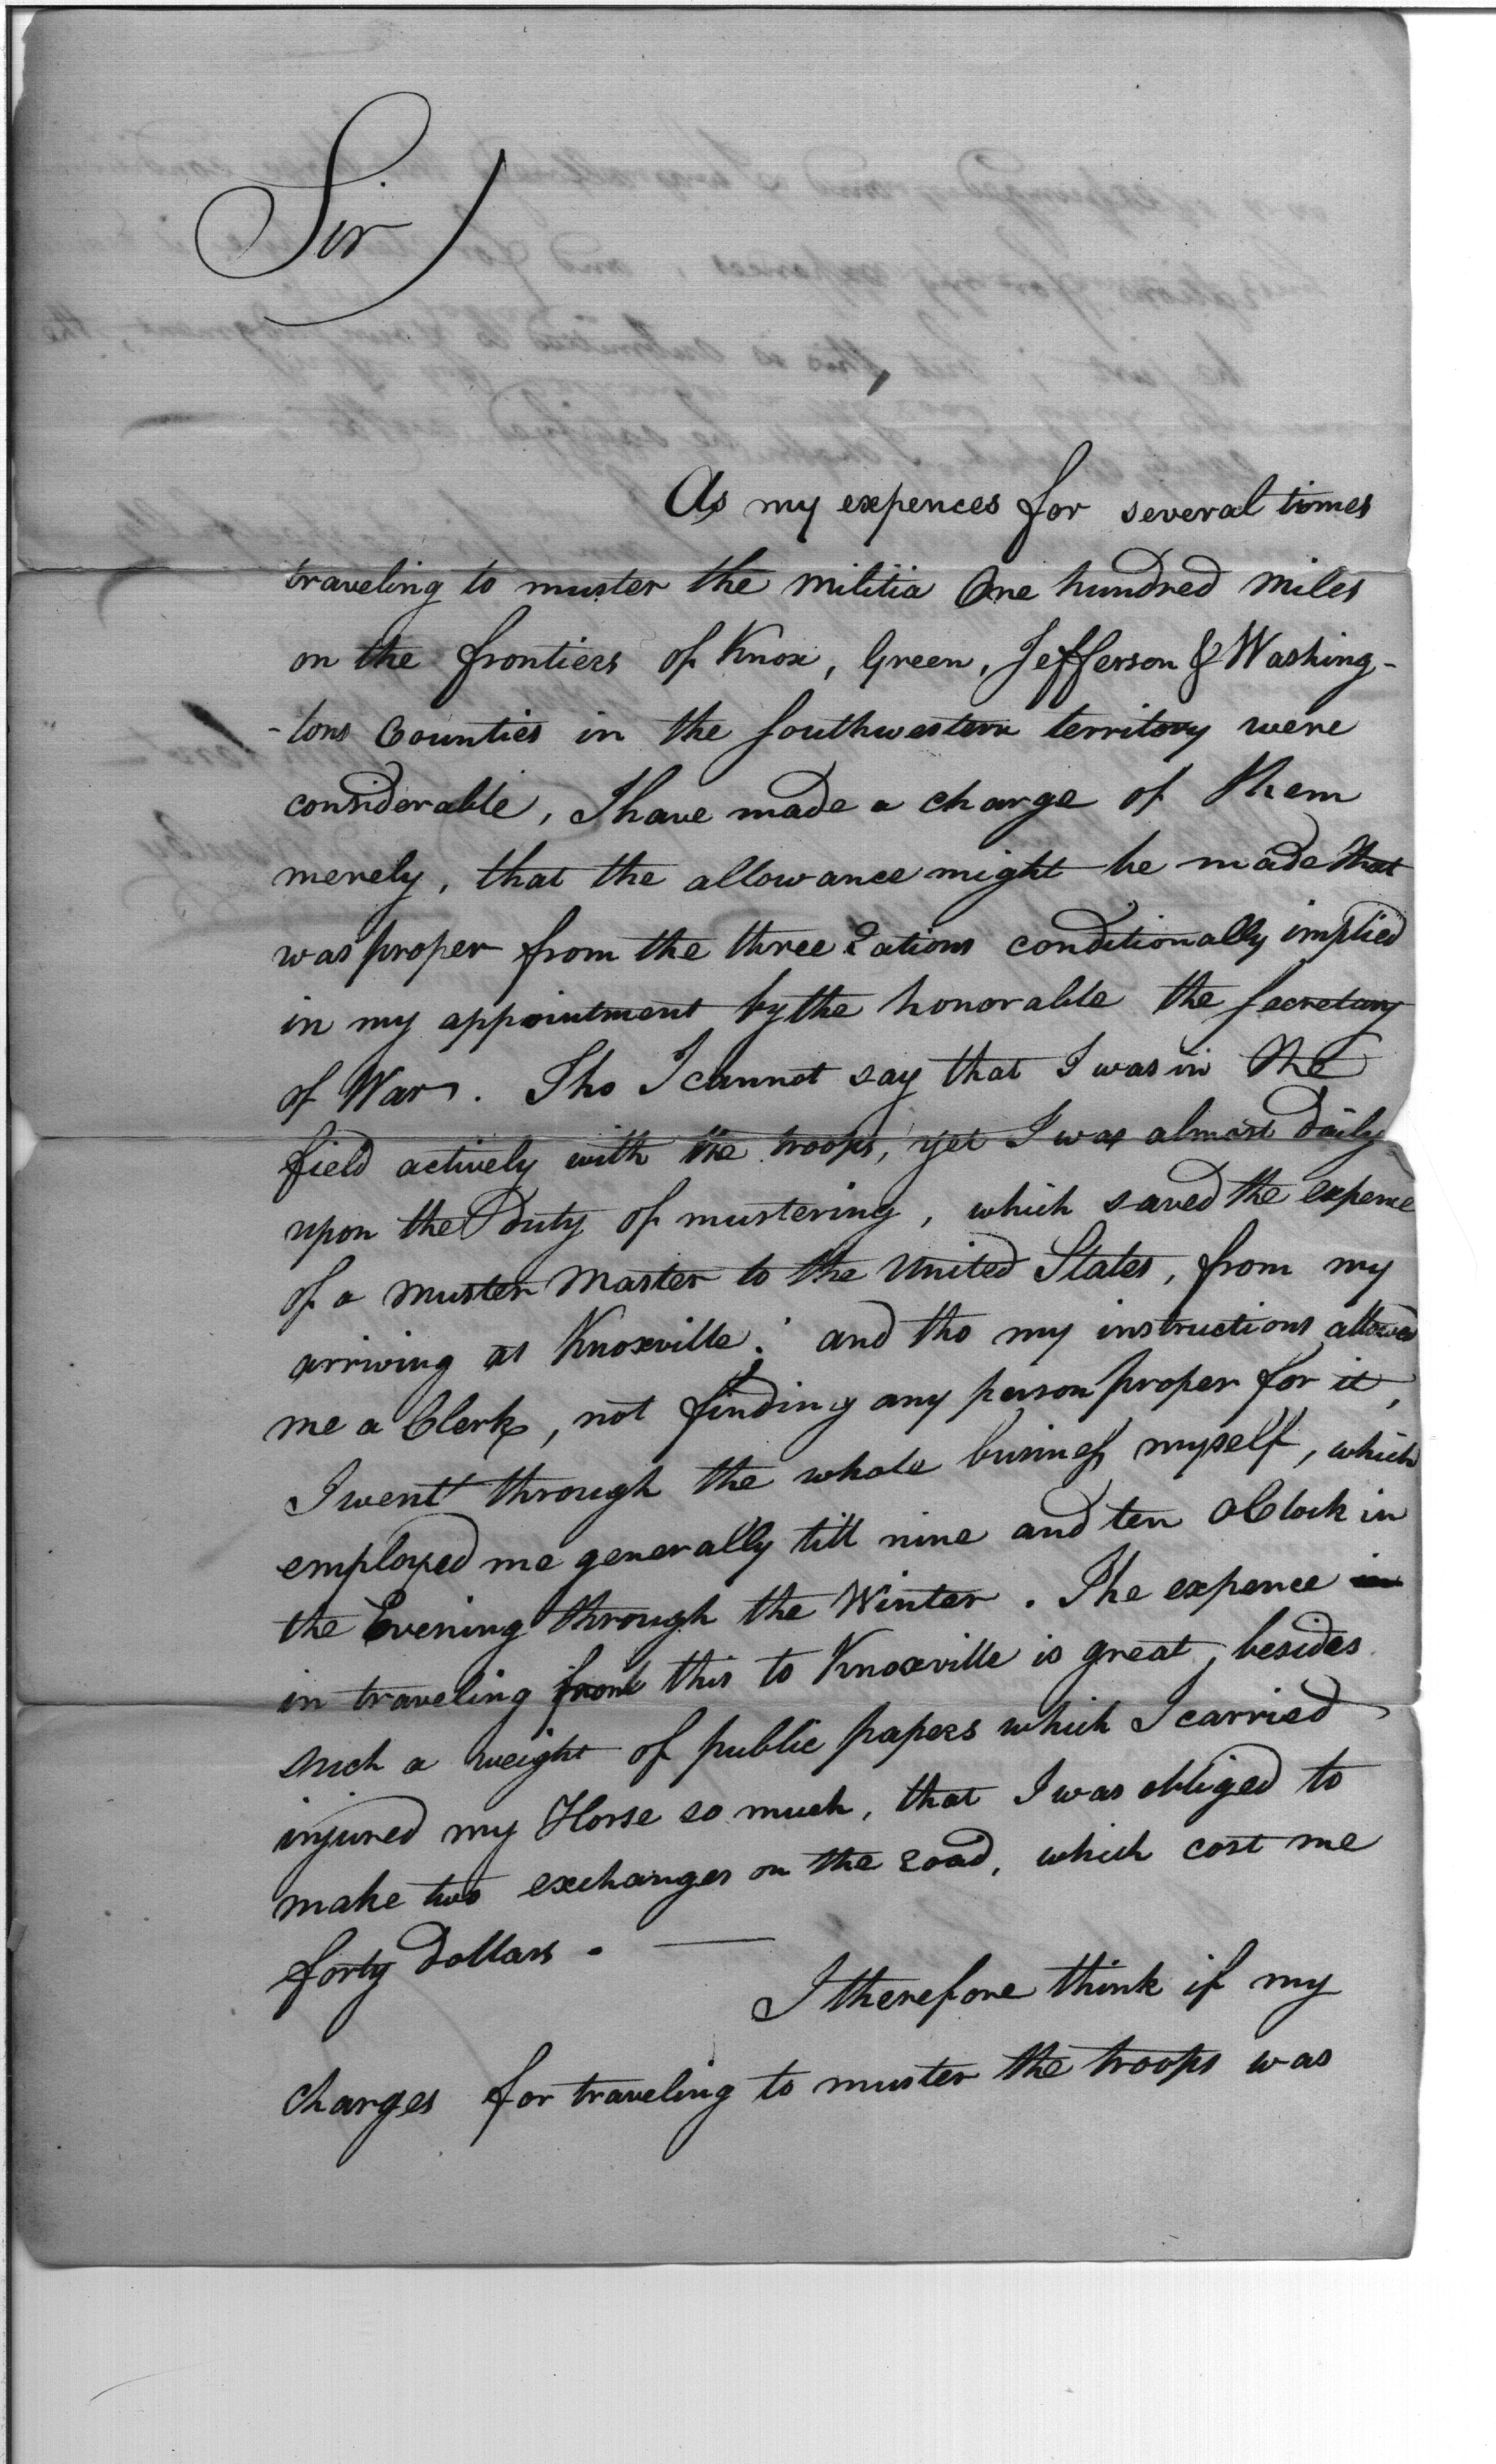 Sir
As my expences for several times
traveling to muster the militia One hundred miles
on the frontiers of Knox, Green, Jefferson & Washing-
-tons Counties in the Southwestern territory were
considerable, I have made a charge of them
merely, that the allowance might be made that
was proper from the three Rations conditionally implied
in my appointment by the honorable the Secretary
of War. Tho I cannot say that I was in the
field actively with the troops, yet I was almost daily
upon the Duty of mustering, which saved the expence
of a Muster Master to the United States, from my
arriving at Knoxville; and tho my instructions allowed
me a Clerk, not finding any person proper for it,
I went through the whole business myself, which
employed me generally till nine and ten oClock in
the Evening through the Winter. The expence
in traveling from this to Knoxville is great, besides
such a weight of public papers which I carried
injured my Horse so much, that I was obliged to
make two exchanges on the road, which cost me
forty Dollars. —
I therefore think if my
charges for traveling to muster the troops was